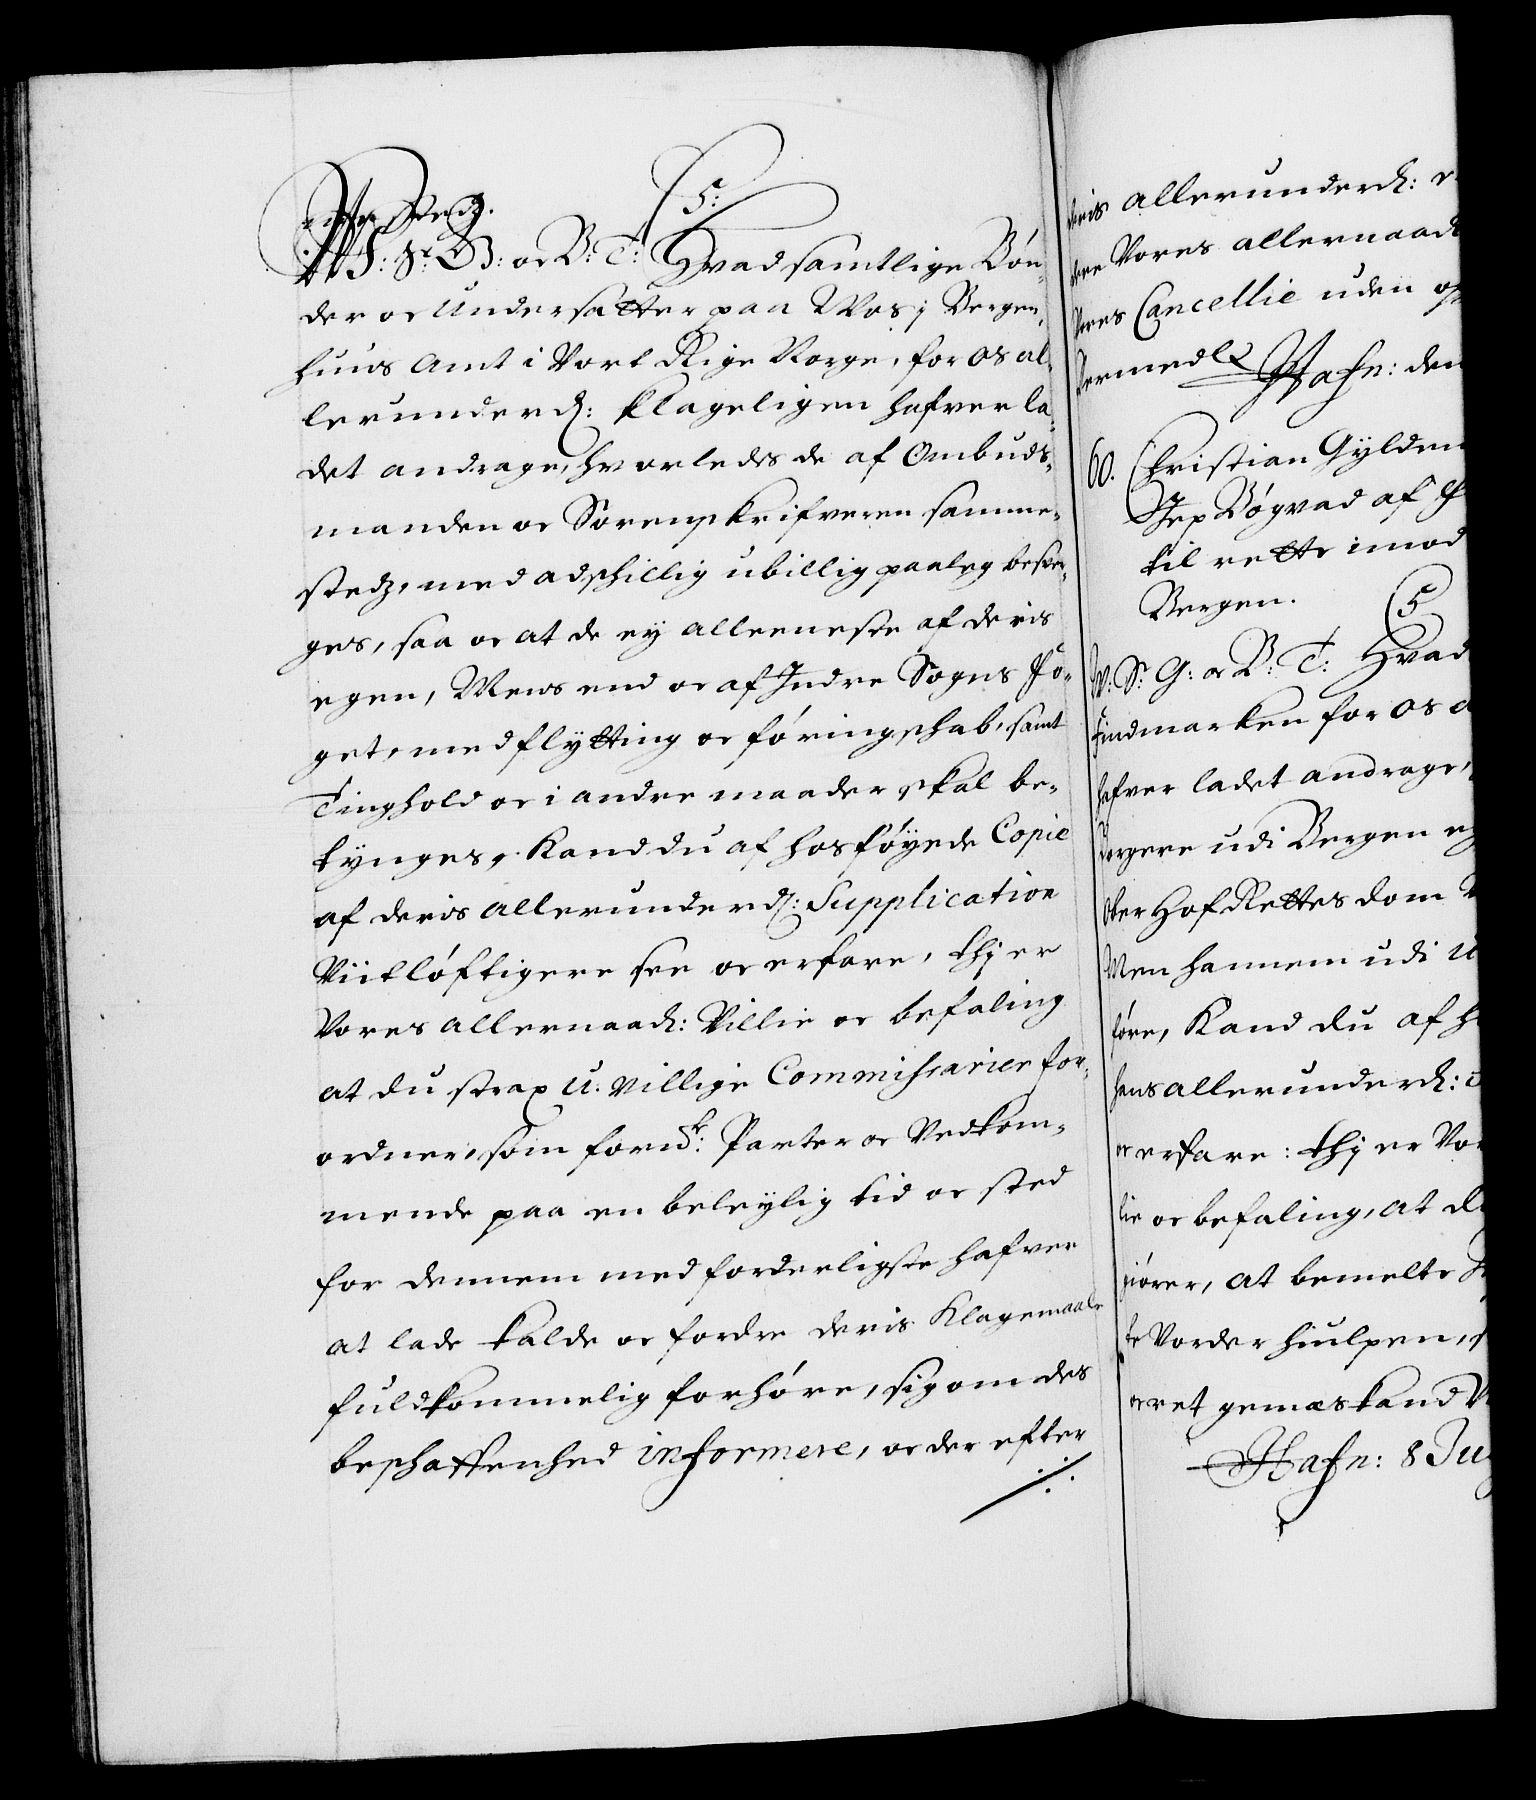 5:
W: S: G: oc B: T: Hvad samtlige Bøn-
der oc Undersatter paa Wos i Bergen-
huus Amt i Vort Rige Norge, for os al-
lerunderd: klageligen hafver la-
det andrage, hvorledes de af Ombuds-
manden oc Sorenskrifveren samme-
stedz, med adschillig ubillig paaleg besver-
ges, saa oc at de ey alleeneste af deris
egen, Mens end oc af Indre Sogns Fo-
get, med flytting oc føringschab, samt
Tinghold oc i andre maader skal be-
tynges, Kand du af hosføyede Copie
af deris allerunderd: Supplication
Viitløftigere see oc erfare, thj er
Vores allernaad: Villie oc befaling
at du strax U-villige Commissarier for-
ordner, som fornde: Parter oc Vedkom-
mende paa en beleylig tid oc sted
for dennem med forderligste hafver
at lade kalde oc fordre deris Klagemaale
fuldkommelig forhøre, sig om des
beschaffenhed informere, oc der efter
deris allerunderd:
dere Vores allernaad
Vores Cancellie uden
Hafn: den
60. Christian Gylden
Jep Bøgvad af
til rette imod
Bergen.
5
W: S: G: oc B: T: Hvad
Findmarken for os
hafver ladet andrage,
Borgere udi Bergen
Ober Hof Rettes dom
Men hannem udi
føre, Kand du af
hans allerunderd:
oc erfare: thj er Vor
lie oc befaling, at
giører, at bemelte
te Vorder hiulpen,
oc ret gemæs kand
Hafn: 8